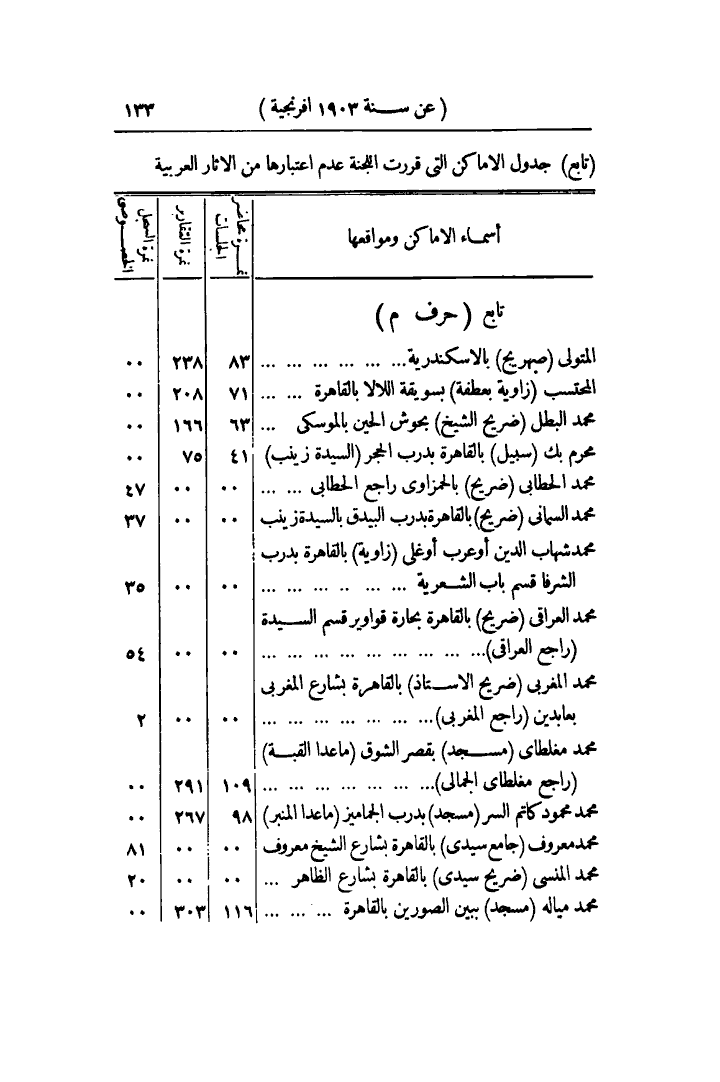 ( عن سنة ١٩٠٣ افرنجية ) ١٣٣
(تابع) جدول الاماكن التى قررت اللجنة عدم اعتبارها من الاثار العربية
أسماء الاماكن ومواقعها | نمرة محاضر الجلسات | نمرة التقارير | نمرة السجل الخصوصى
تابع ( حرف م )
المتولى (صهريج) بالاسكندرية... ... ... ... ... ... ٨٣ ٢٣٨ ٠٠
المحتسب (زاوية بعطفة) بسويقة اللالا بالقاهرة ... ... ٧١ ٢٠٨ ٠٠
محمد البطل (ضريح الشيخ) بحوش الحين بالموسكى ... ٦٣ ١٦٦ ٠٠
محرم بك (سبيل) بالقاهرة بدرب الحجر (السيدة زينب) ٤١ ٧٥ ٠٠
محمد الحطابى (ضريح) بالحمزاوى راجع الحطابى ... ... ٠٠ ٠٠ ٤٧
محمد السمانى (ضريح) بالقاهرة بدرب البيدق بالسيدة زينب ٠٠ ٠٠ ٣٧
محمد شهاب الدين أوعرب أوغلى (زاوية) بالقاهرة بدرب
الشرفا قسم باب الشعرية ... ... .. ... ... ... ٠٠ ٠٠ ٣٥
محمد العراقى (ضريح) بالقاهرة بحارة قواوير قسم السيدة
(راجع العراقى)... ... ... ... ... ... ... ... ... ٠٠ ٠٠ ٥٤
محمد المغربى (ضريح الاستاذ) بالقاهرة بشارع المغربى
بعابدين (راجع المغربى)... ... ... ... ... ... ... ٠٠ ٠٠ ٢
محمد مغلطاى (مسجد) بقصر الشوق (ماعدا القبة)
(راجع مغلطاى الجمالى)... ... ... ... ... ... ... ١٠٩ ٢٩١ ٠٠
محمد محمود كاتم السر (مسجد) بدرب الجماميز (ماعدا المنبر) ٩٨ ٢٦٧ ٠٠
محمد معروف (جامع سيدى) بالقاهرة بشارع الشيخ معروف ٠٠ ٠٠ ٨١
محمد المنسى (ضريح سيدى) بالقاهرة بشارع الظاهر ... ٠٠ ٠٠ ٢٠
محمد مياله (مسجد) ببين الصورين بالقاهرة ... ... ... ١١٦ ٣٠٣ ٠٠